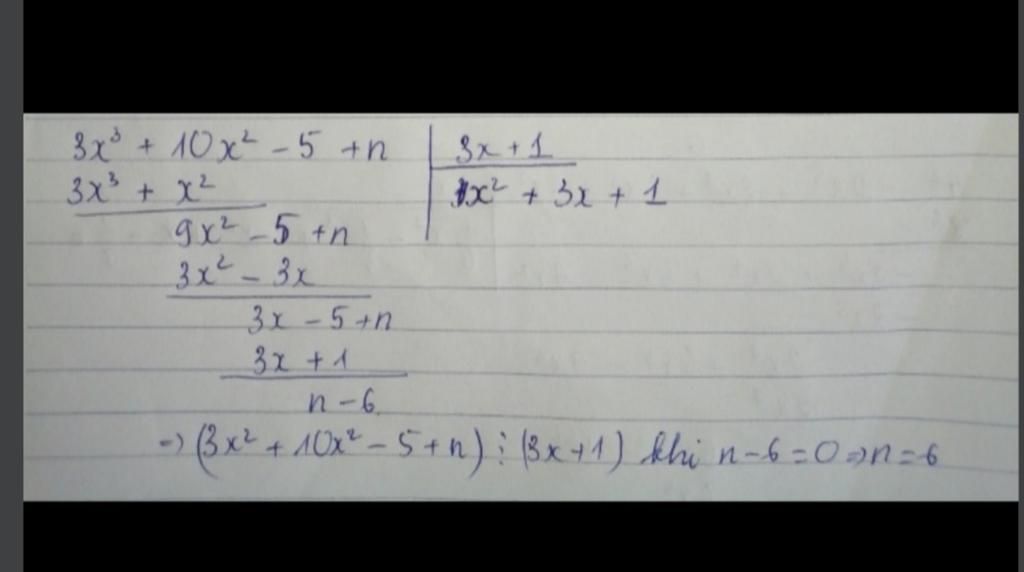 3x³ + 10x² - 5 + n | 3x + 1
3x³ + x² | 1x² + 3x + 1
9x² - 5 + n
3x² - 3x
3x - 5 + n
3x + 1
n - 6
=> (3x² + 10x² - 5 + n) ⋮ (3x + 1) khi n - 6 = 0 => n = 6